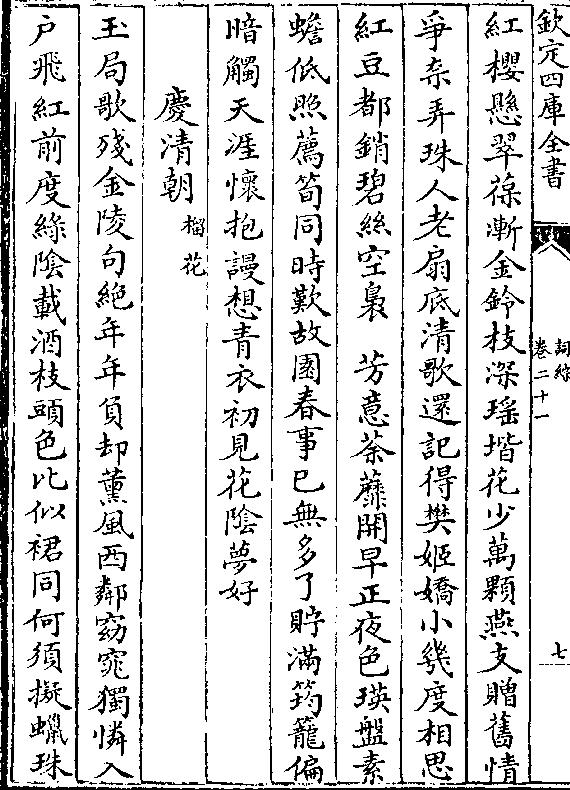 欽定四庫全書
詞綜
卷二十一
七
紅櫻懸翠葆漸金鈴枝深瑶堦花少萬顆燕支贈舊情
爭柰弄珠人老扇底清歌還記得樊姬嬌小幾度相思
紅豆都銷碧絲空裊　芳意荼蘼開早正夜色瑛盤素
蟾低照薦筍同時歎故園春事已無多了貯滿筠籠偏
暗觸天涯懷抱謾想青衣初見花陰夢好
慶清朝 榴花
玉局歌殘金陵句絶年年負却薰風西鄰窈窕獨憐入
户飛紅前度綠隂載酒枝頭色比似裙同何須擬蠟珠